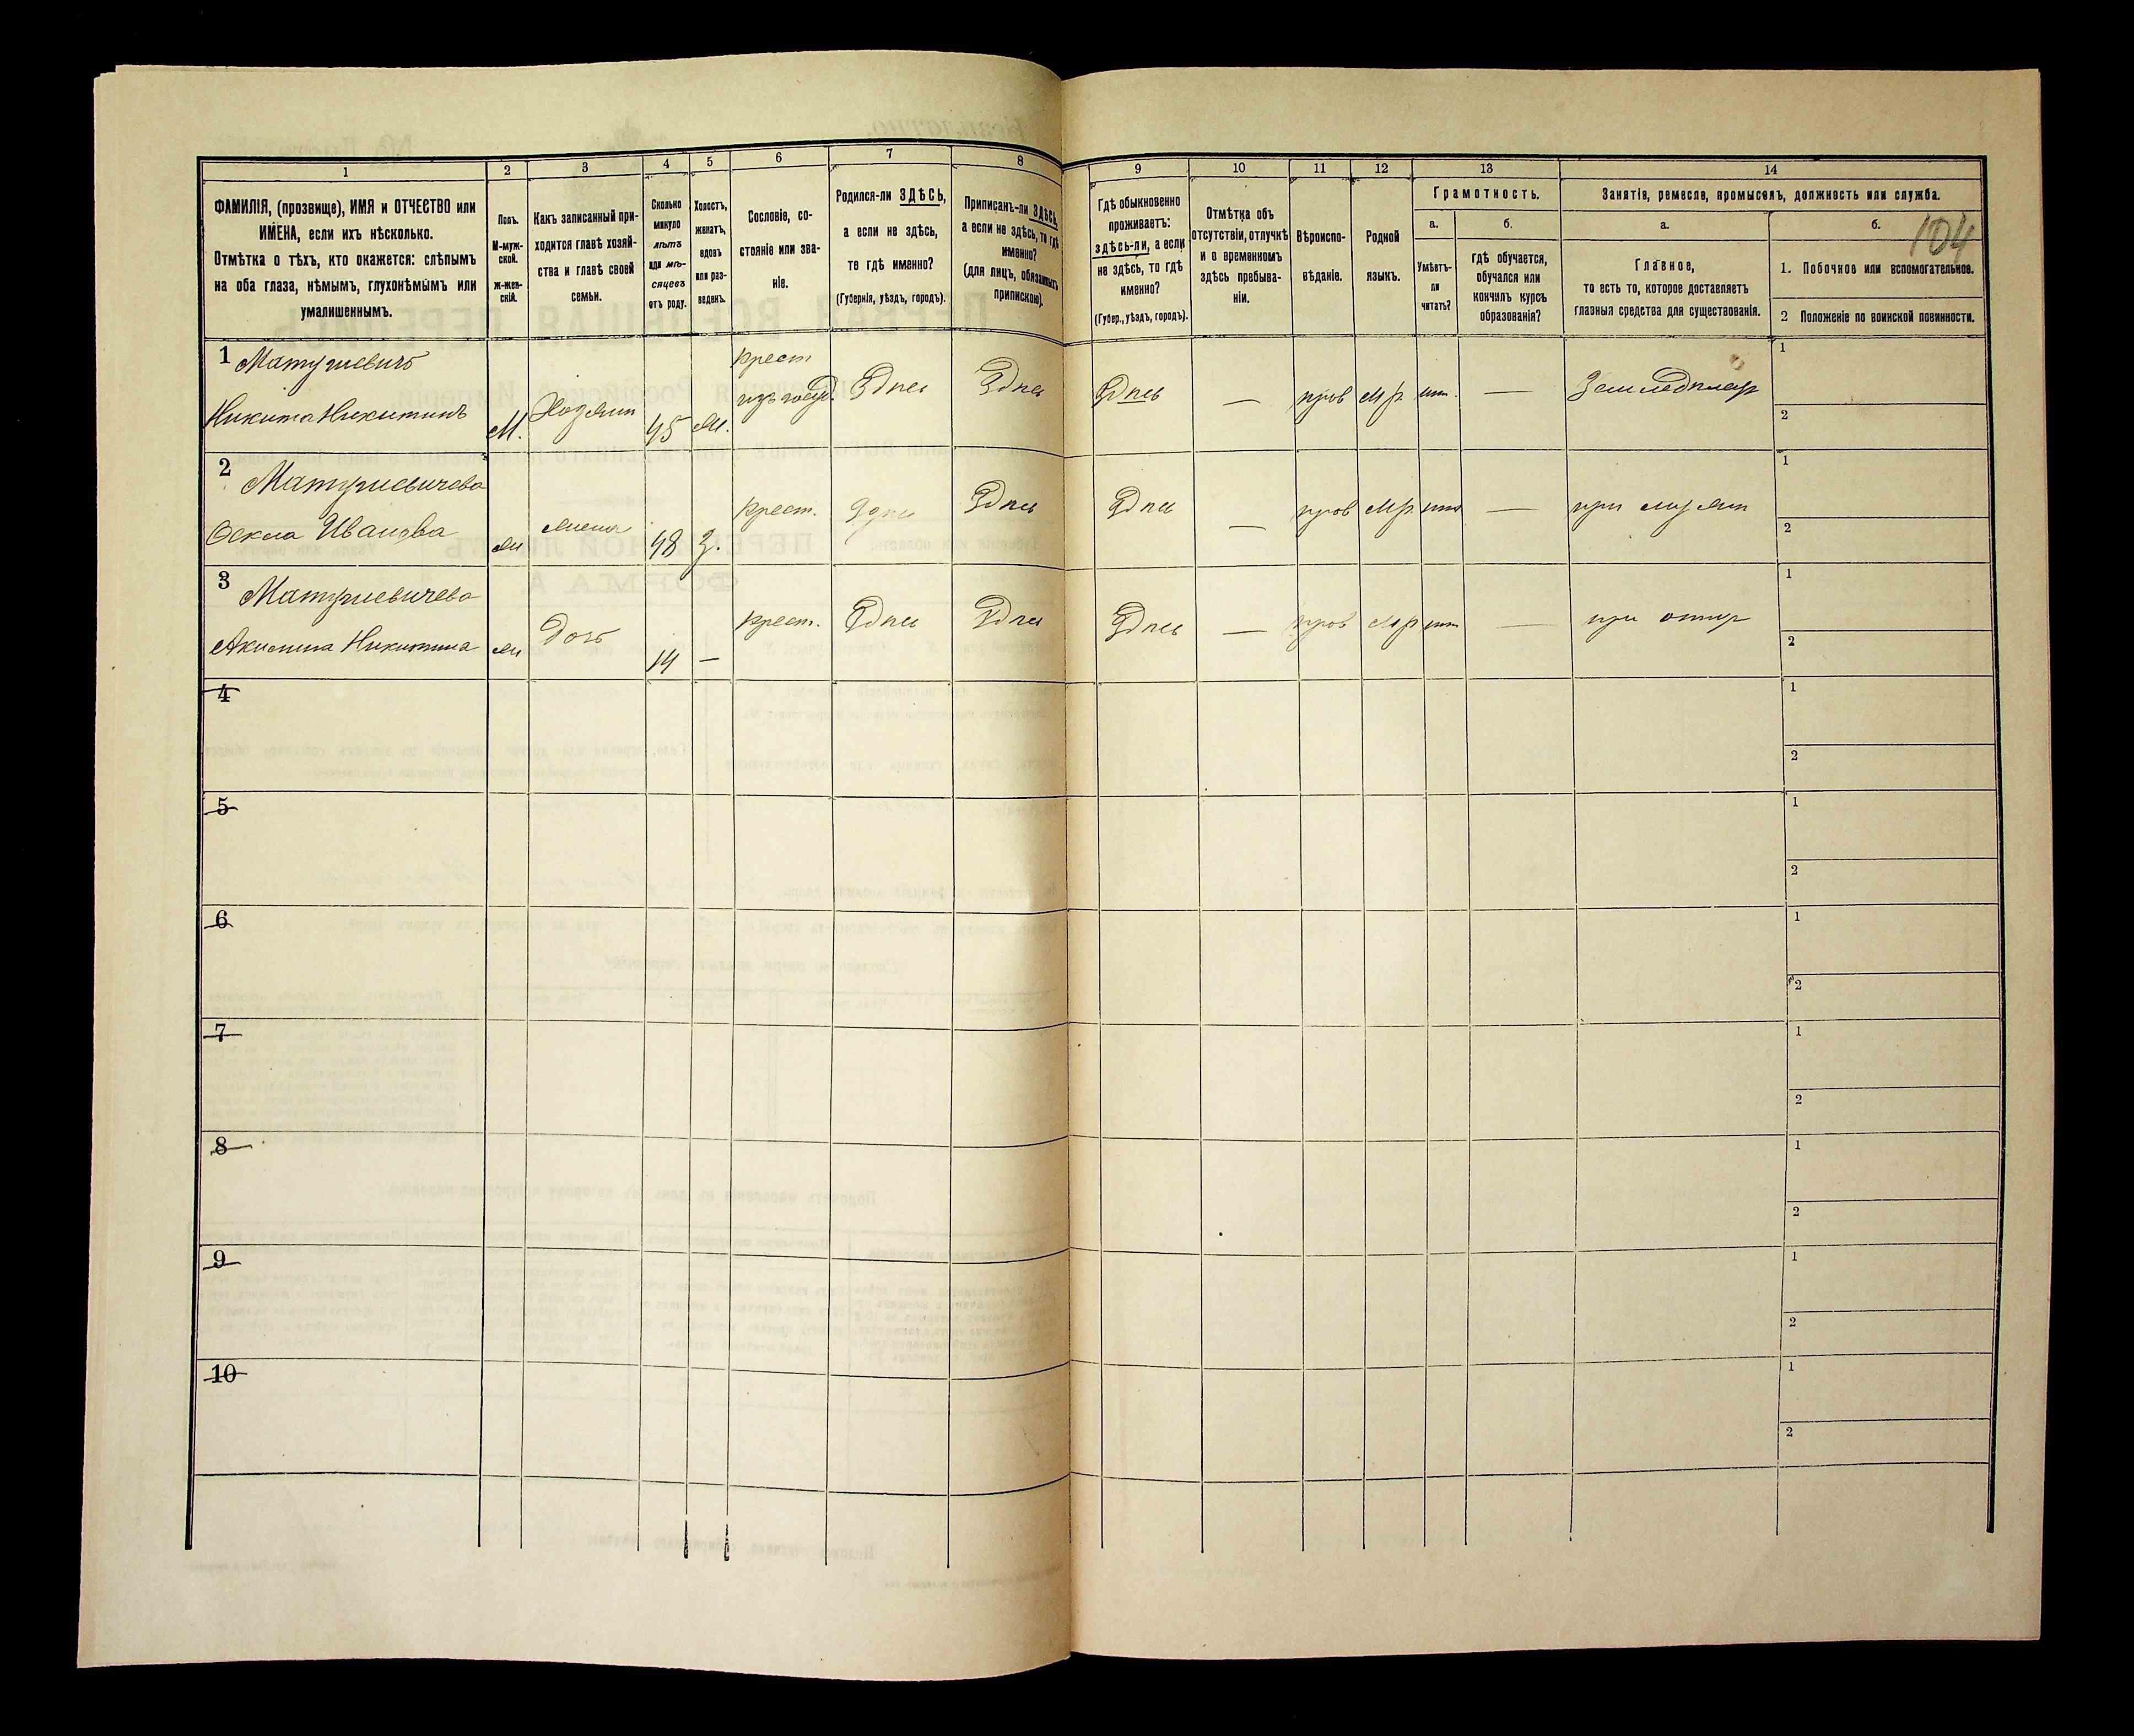 1 2 3 4 5 6 7 8 9 10 11 12 13 14
ФАМИЛІЯ, (прозвище), ИМЯ и ОТЧЕСТВО или
ИМЕНА, если ихъ нѣсколько.
Отмѣтка о тѣхъ, кто окажется: слѣпымъ
на оба глаза, нѣмымъ, глухонѣмымъ или
умалишеннымъ.
Полъ.
М-муж-
ской.
ж-жен-
скій.
Какъ записанный при-
ходится главѣ хозяй-
ства и главѣ своей
семьи.
Сколько
минуло
лѣтъ
или мѣ-
сяцевъ
отъ роду.
Холостъ,
женатъ,
вдовъ
или раз-
веденъ.
Сословіе, со-
стояніе или зва-
ніе.
Родился-ли ЗДѢСЬ,
а если не здѣсь,
то гдѣ именно?
(Губернія, уѣздъ, городъ).
Приписанъ-ли ЗДѢСЬ,
а если не здѣсь, то гдѣ
именно?
(для лицъ, обязанныхъ
припискою).
Гдѣ обыкновенно
проживаетъ:
здѣсь-ли, а если
не здѣсь, то гдѣ
именно?
(Губер., уѣздъ, городъ).
Отмѣтка объ
отсутствіи, отлучкѣ
и о временномъ
здѣсь пребыва-
ніи.
Вѣроиспо-
вѣданіе.
Родной
языкъ.
Грамотность.
а.
Умѣетъ-
ли
читать?
б.
гдѣ обучается,
обучался или
кончилъ курсъ
образованія?
Занятія, ремесло, промыселъ, должность или служба.
а.
Главное,
то есть то, которое доставляетъ
главныя средства для существованія.
б.
104
1. Побочное или вспомогательное.
2 Положеніе по воинской повинности.
1 Матусевичъ
Никита Никитинъ
М. Хозяин 45 ж.
Крест
из госуд. Здѣсь Здѣсь Здѣсь — прав М р нт. — Земледѣлец
1
2
2 Матусевичева
Оекла Иванова
ж жена 48 З. Крест. Здѣсь Здѣсь Здѣсь — прав М р нт — при мужѣ
1
2
3 Матусевичева
Акилина Никитина
ж Дочь 14 — Крест. Здѣсь Здѣсь Здѣсь — прав М р нт — при отцѣ
1
2
4
1
2
5
1
2
6
1
2
7
1
2
8
1
2
9
1
2
10
1
2